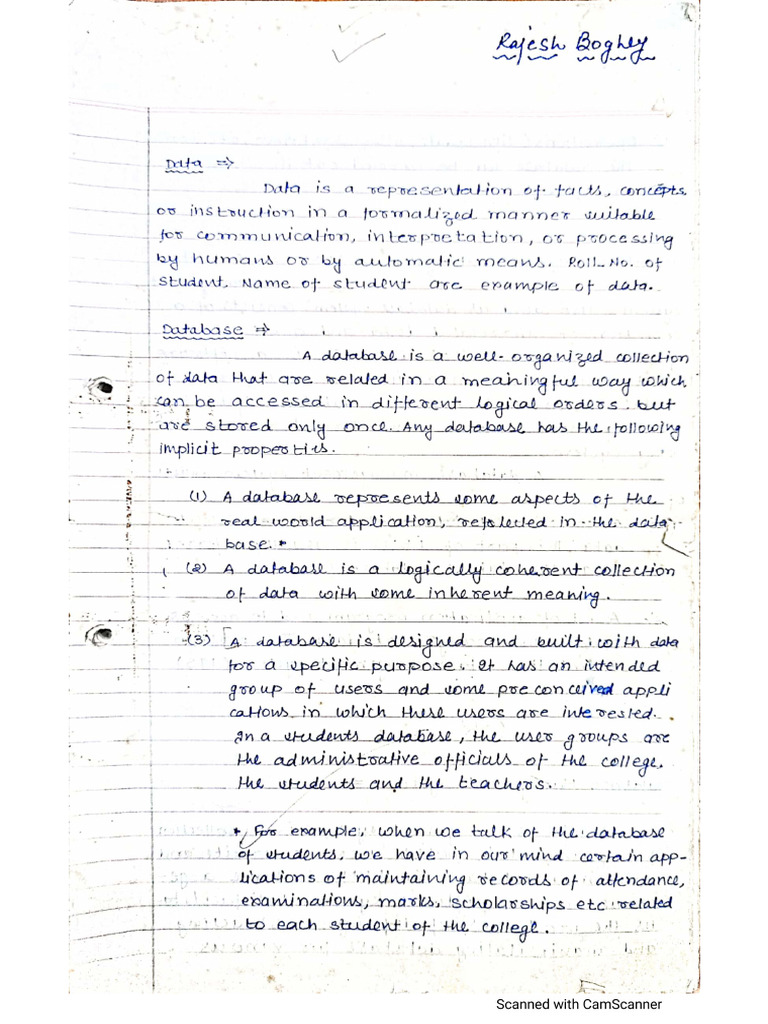 Rajesh Boghey
Data ⇒
Data is a representation of facts, concepts,
or instruction in a formalized manner suitable
for communication, interpretation, or processing
by humans or by automatic means. Roll. No. of
student Name of student are example of data.
Database ⇒
A database is a well-organized collection
of data that are related in a meaningful way which
can be accessed in different logical orders but
are stored only once. Any database has the following
implicit properties.
(1) A database represents some aspects of the
real world application, reflected in the data
base. *
(2) A database is a logically coherent collection
of data with some inherent meaning.
(3) [A database is designed and built with data
for a specific purpose. It has an intended
group of users and some preconceived appli
cations in which these users are interested.
In a students database, the user groups are
the administrative officials of the college,
the students and the teachers.
* For example, when we talk of the database
of students, we have in our mind certain app-
lications of maintaining records of attendance,
examinations, marks, scholarships etc related
to each student of the college.
Scanned with CamScanner